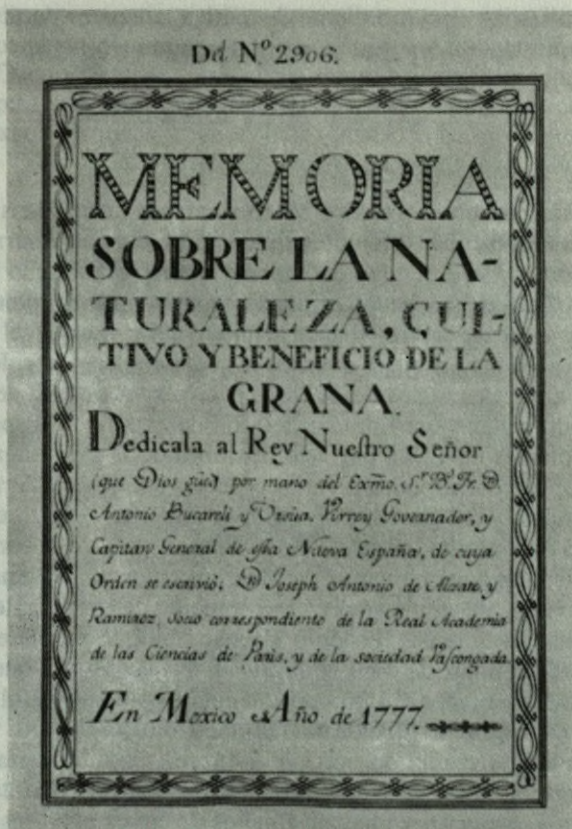 Dd N.º 2906.
MEMORIA
SOBRE LA NA-
TURALEZA, CUL-
TIVO Y BENEFICIO DE LA
GRANA.
Dedicala al Rey Nuestro Señor
(que Dios gũe) por mano del Exmõ. S.r B.o Fr. D.
Antonio Bucareli y Ursùa, Virrey Governador, y
Capitan General de esta Nueva España, de cuya
Orden se escrivió; D Joseph Antonio de Alzate, y
Ramirez, socio correspondiente de la Real Academia
de las Ciencias de Paris, y de la sociedad Vascongada.
En Mexico Año de 1777.